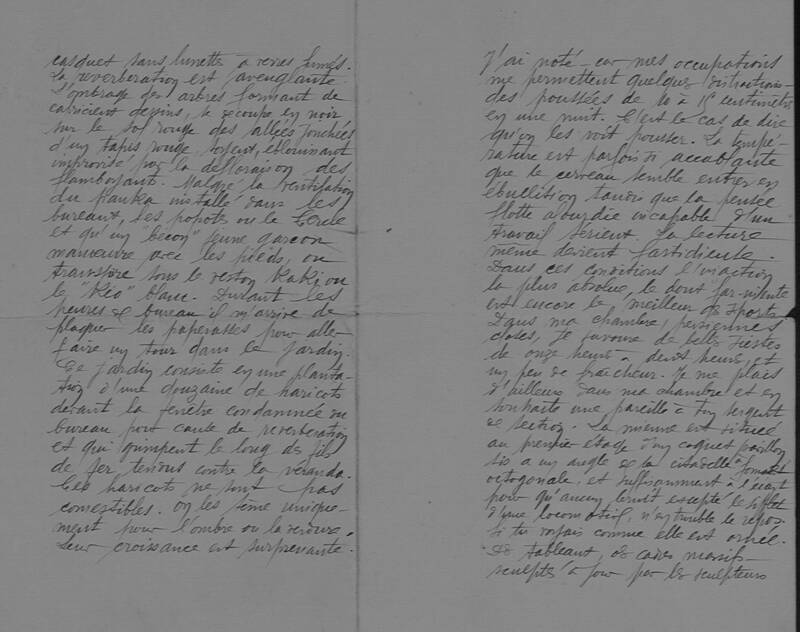 casquet sans lunettes à verres fumés.
La reverbération est aveuglante
L'ombrage des arbres formant de
capricieux dessins, se découpe en noir
sur le sol rouge des allées jonchées
d'un tapis rouge, soyeux, éblouissant
improvisé par la défloraison des
flamboyant. Malgré la ventilation
du Panka installé dans les
bureaux, les popotes ou le Cercle
et qu'un "bécon" jeune garçon
manoeuvre avec les pieds, on
transpire sous le veston Kaki ou
le "Kéo" blanc. Durant les
heures de bureau il m'arrive de
plaquer les paperasses pour aller
faire un tour dans le jardin.
Ce jardin consiste en une planta-
tion d'une douzaine de haricots
devant la fenêtre condamnée du
bureau pour cause de reverbération
et qui grimpent le long de fils
de fer tendus contre la veranda.
Ces haricots ne sont pas
comestibles. On les sème unique-
ment pour l'ombre ou la verdure.
Leur croissance est surprenante.
J'ai noté - car mes occupations
me permettent quelques distractions -
des poussées de 10 à 15 centimètres
en une nuit. C'est le cas de dire
qu'on les voit pousser. La tempé-
rature est parfois si accablante
que le cerveau semble entrer en
ébullition tandis que la pensée
flotte abourdie incapable d'un
travail sérieux. La lecture
même devient fastidieuse.
Dans ces conditions l'inaction
la plus absolue, le doux far-niente
est encore le meilleur des sports.
Dans ma chambre, persiennes
closes, je savoure de belles siestes
de onze heures à deux heures, et
un peu de fraîcheur. Je me plais
d'ailleurs dans ma chambre et en
souhaite une pareille à ton sergent
de section. La mienne est située
au premier étage d'un coquet pavillon
sis à un angle de la citadelle à format
octogonale, et suffisamment à l'écart
pour qu'aucun bruit excepté le sifflet
d'une locomotive, n'en trouble le repos.
Si tu voyais comme elle est ornée.
De tableaux, de cadres massifs
sculptés à jour par les sculpteurs